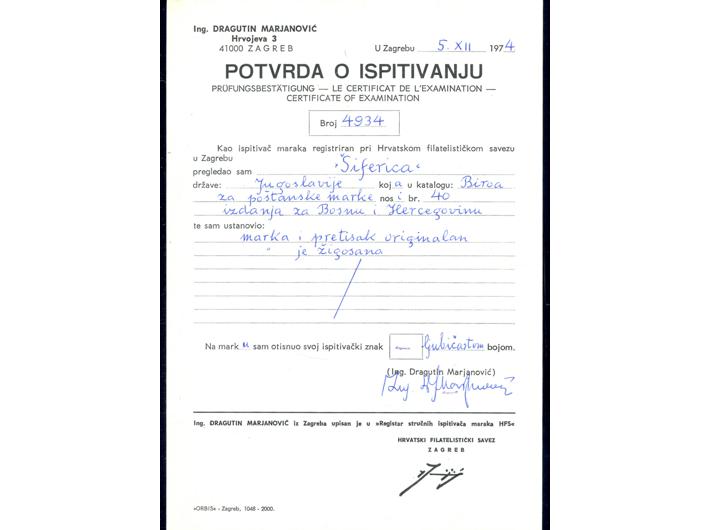 Ing. DRAGUTIN MARJANOVIĆ
Hrvojeva 3
41000 ZAGREB
U Zagrebu 5. XII 1974
POTVRDA O ISPITIVANJU
PRÜFUNGSBESTÄTIGUNG — LE CERTIFICAT DE L'EXAMINATION —
CERTIFICATE OF EXAMINATION
Broj 4934
Kao ispitivač maraka registriran pri Hrvatskom filatelističkom savezu
u Zagrebu
pregledao sam "Šiferica"
države: Jugoslavije koja u katalogu: Biroa
za poštanske marke nosi br. 40
izdanja za Bosnu i Hercegovinu
te sam ustanovio:
marka i pretisak originalan
" je žigosana
Na mark u sam otisnuo svoj ispitivački znak — ljubičastom bojom.
(Ing. Dragutin Marjanović)
Ing. DRAGUTIN MARJANOVIĆ iz Zagreba upisan je u »Registar stručnih ispitivača maraka HFS«
HRVATSKI FILATELISTIČKI SAVEZ
ZAGREB
»ORBIS« - Zagreb, 1048 - 2000.